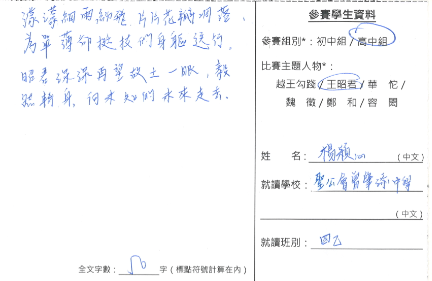 濛濛細雨紛飛,片片花瓣凋落,
為單薄卻挺拔的身軀送行。
昭君深深再望故土一眼,毅
然轉身,向未知的未來走去.
全文字數:50字(標點符號計算在內)
參賽學生資料
參賽組別*:初中組/高中組
比賽主題人物*:
越王勾踐/王昭君/華佗/
魏徵/鄭和/容閎
姓名:楊穎(中文)
就讀學校:聖公會曾肇添中學
(中文)
就讀班別:四乙